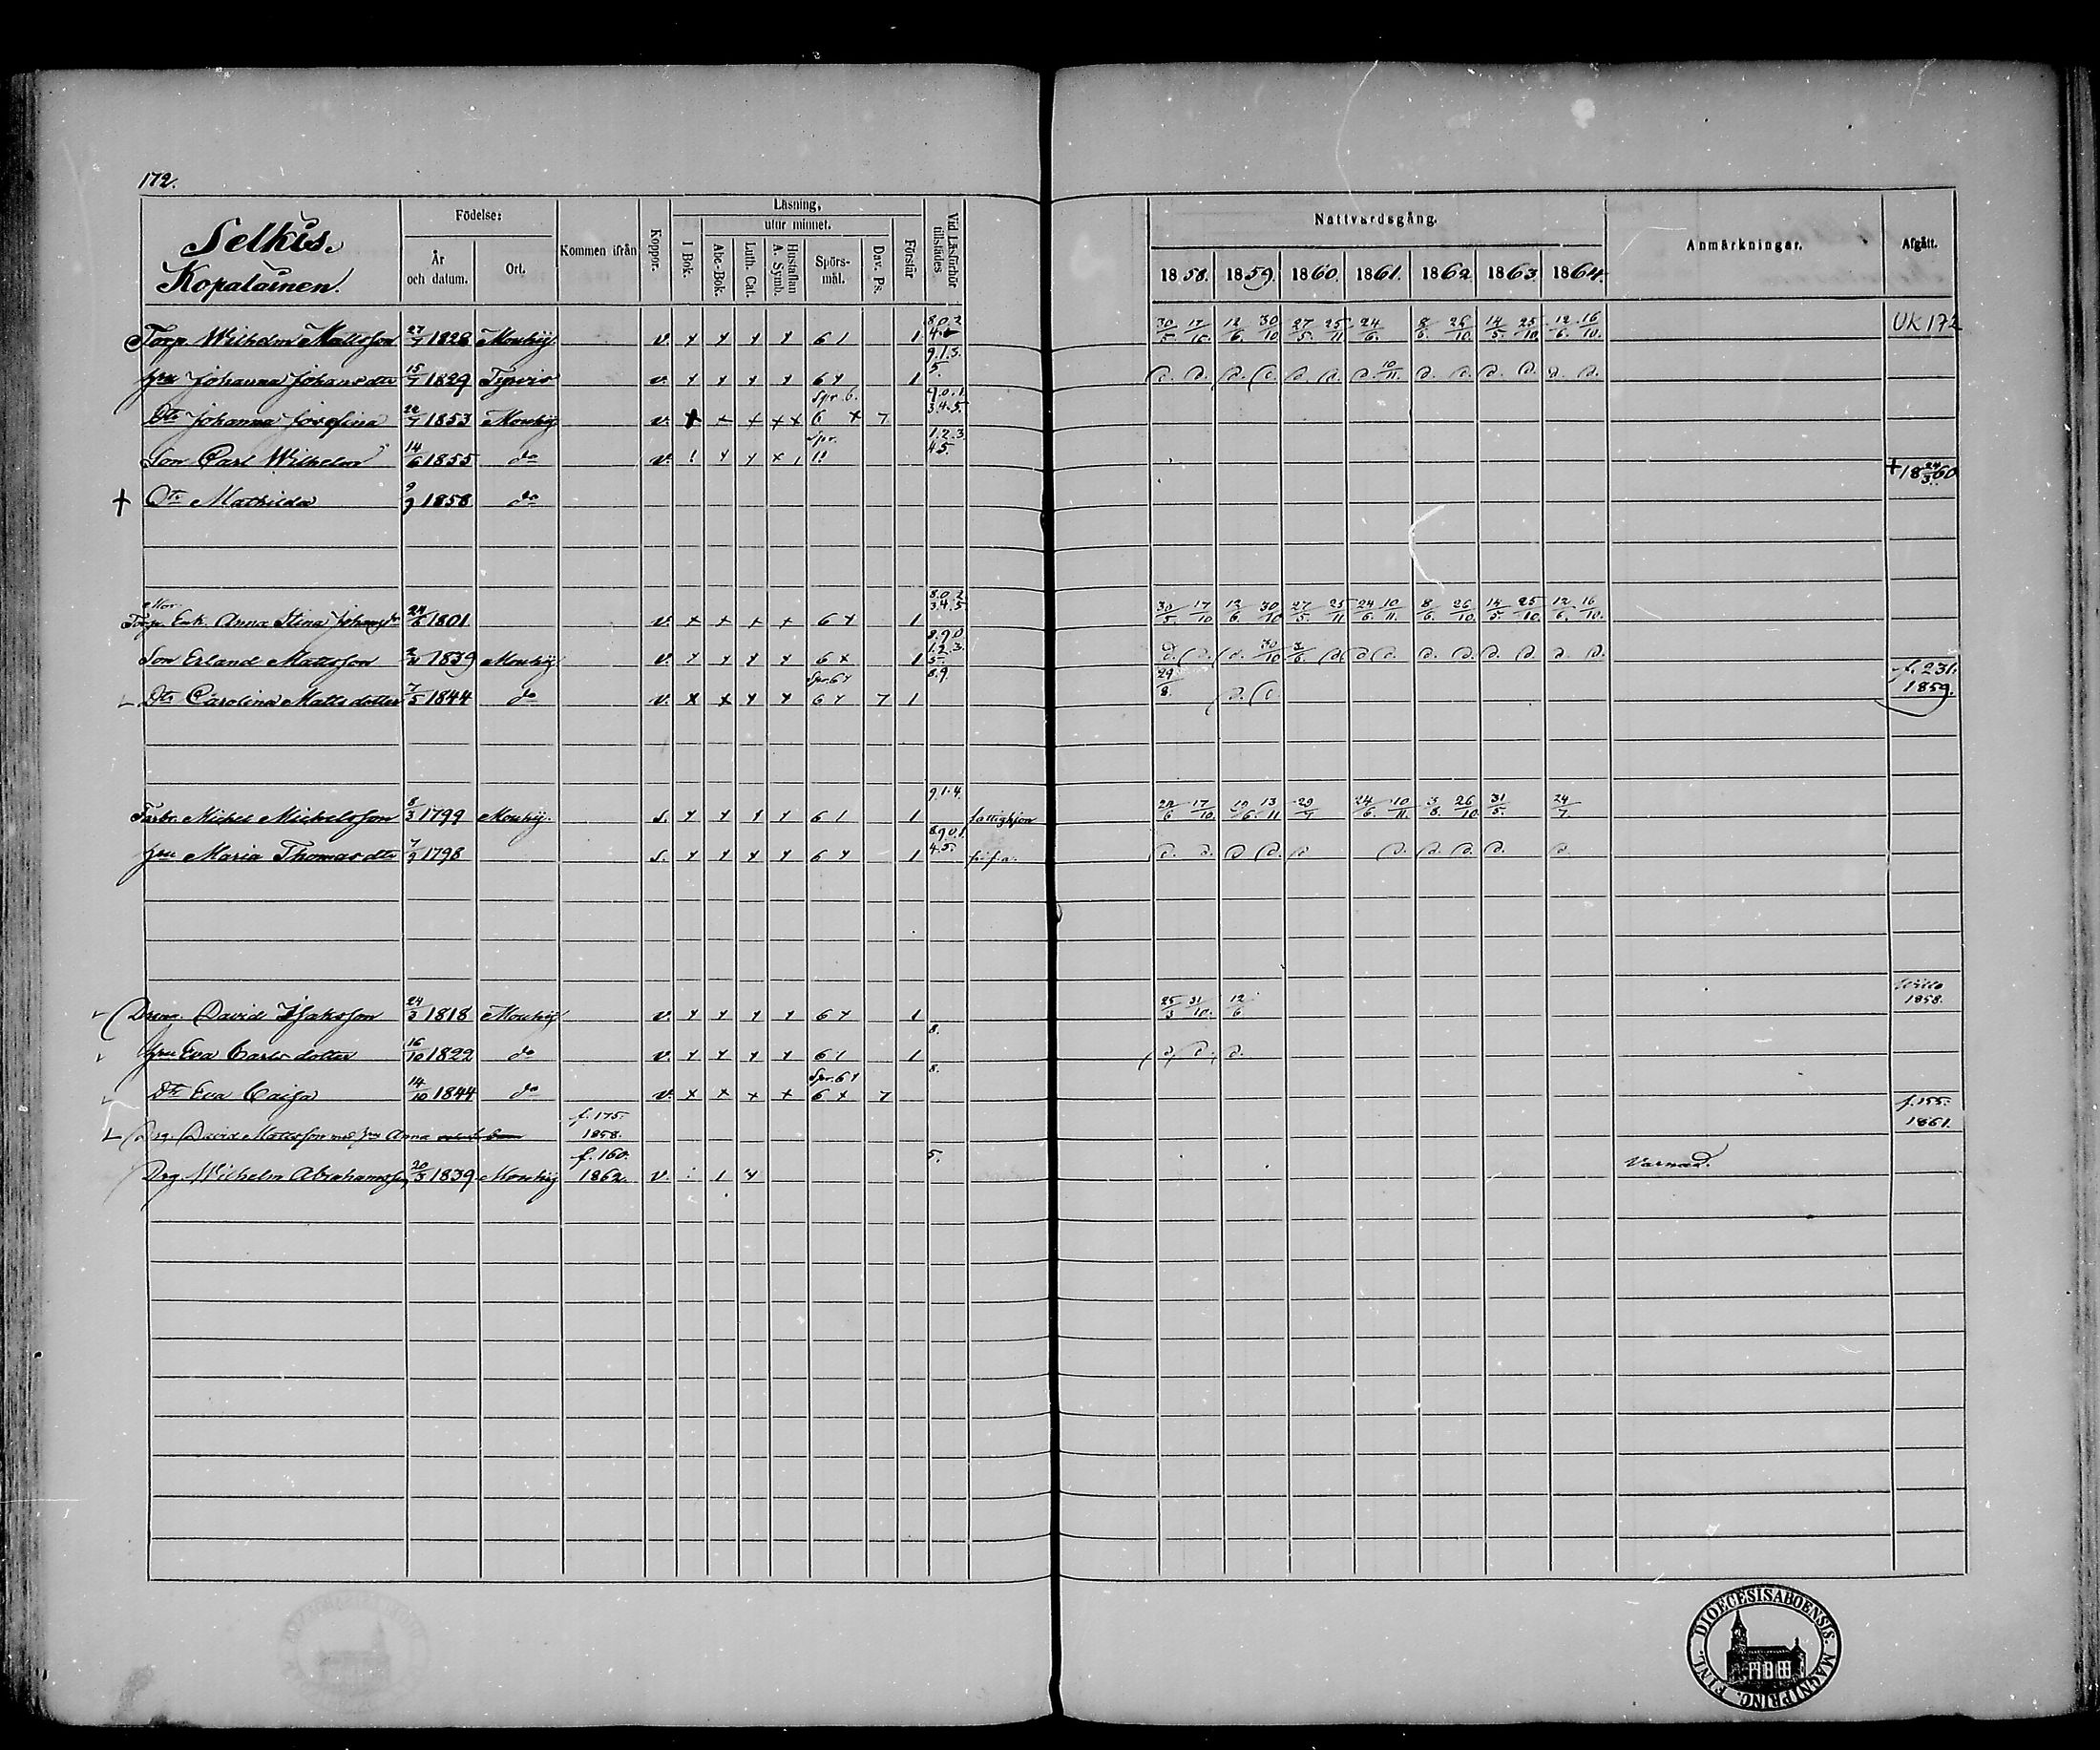 172.
Selkis.
Kopalainen.
Födelse:
År och datum.
Ort.
Kommen ifrån
Koppor.
Läsning,
utur minnet.
I Bok.
Abc-Bok.
Luth. Cat.
Hustaflan A. Symb.
Spörsmål.
Dav. Ps.
Förstår
Vid Läsförhör tillstädes.
Nattvardsgång.
1858. 1859. 1860. 1861. 1862. 1863. 1864.
Anmärkningar.
Afgått.
Torp. Wilhelm Mattsson 27/7 1828 Mouhij v. 6 1 1 8.0.2 4. 30/5 17/10 12/6 30/10 27/5 25/11 24/6. 8/6. 26/10 14/5. 25/10 12/6. 16/10. UK 172
hru Johanna Johansdtr 15/7 1829 Tyrvis v. 6 1 9.1.3. 5. 10/11.
Dtr Johanna Josefina 22/7 1853 Mouhij v. Spr. 6. 6 7 9.0.1. 3.4.5.
Son Carl Wilhelm 14/6 1855 do v. Spr. 1.2.3 4.5.
+ Dtr Mathilda 9/9 1858 do + 18 24/3 60
Torp. Enk. Anna Stina Johansdr 24/6 1801 v. 6 1 8.0.2. 3.4.5 30/5. 17/10 12/6. 30/10 27/5. 25/11 24/6. 10/11. 8/6. 26/10 14/5. 25/10. 12/6. 16/10.
Son Erland Mattsson 1839 Mouhij v. 6 1 8.9.0 1.2.3. 5. 30/10
Dtr Carolina Matts dotter 7/5 1844 do v. Spr. 6 6 7 1 8.9. 29/8. f. 231. 1859.
Farbr. Michel Michelsson 8/3 1799 Mouhij. s. 6 1 1 9.1.4. fattighjon 17/10 13/11 24/6. 10/11. 26/10 31/5. 24/7.
hru Maria Thomasdtr 7/9 1798 s. 6 1 8.9.0.1. 4.5.
David Isaksson 24/3 1818 Mouhij v. 6 1 25/3 31/10. 12/6 1858.
hru Eva Carls dotter 16/10 1822 do v. 6 1 1 8.
Dtr Eva Caisa 14/10 1844 do v. Spr. 6 6 7 8.
Drg. David Mattsson med hru Anna f. 175. 1858. f. 155. 1861.
Drg. Wilhelm Abrahamsson 20/3 1839 Mouhij f. 160. 1862. v. 1 5. Varnad.
DIOECESIS ABOENSIS. MAGNI PRINC. FINL.